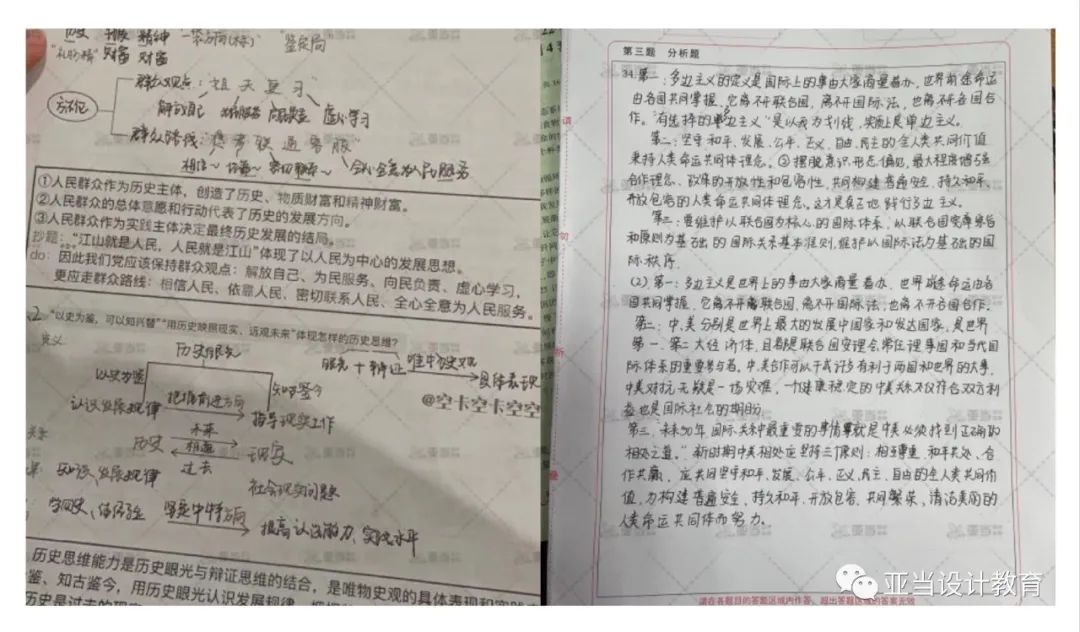 历史 精神
"鉴定局
财富 财富
方法论
群众观点：
解放自己 虚心学习
群众路线
相信~ 依靠~ 密切联系~ 全心全意为人民服务
①人民群众作为历史主体，创造了历史、物质财富和精神财富。
②人民群众的总体意愿和行动代表了历史的发展方向。
③人民群众作为实践主体决定最终历史发展的结局。
抄题："江山就是人民，人民就是江山"体现了以人民为中心的发展思想。
do：因此我们党应该保持群众观点：解放自己、为民服务、向民负责、虚心学习，
更应走群众路线：相信人民、依靠人民、密切联系人民、全心全意为人民服务。
2 "以史为鉴，可以知兴替""用历史映照现实、远观未来"体现怎样的历史思维？
历史眼光
眼光+辩证 唯物史观
具体表现
以史为鉴 知古鉴今
认识发展规律 把握前进方向 指导现实工作
@空卡空卡空空
历史 未来 相通 过去 现实
知识、发展规律
社会现实问题
学历史、 提高认识能力、实践水平
历史思维能力是历史眼光与辩证思维的结合，是唯物史观的具体表现和实践
鉴、知古鉴今，用历史眼光认识发展规律、
第三题 分析题
34.第一：多边主义的定义是国际上的事由大家商量着办，世界前途命运
由各国共同掌握，它离不开联合国，离不开国际法，也离不开各国合
作。"有选择的单边主义"是以我为划线，实质上是单边主义。
第二：坚守和平、发展、公平、正义、自由、民主的全人类共同价值
秉持人类命运共同体理念。②摆脱意识形态偏见，最大程度增强
合作理念、政策的开放性和包容性，共同构建普遍安全、持久和平、
开放包容的人类命运共同体理念，这才是真正地践行多边主义。
第三：要维护以联合国为核心的国际体系，以联合国宪章宗旨
和原则为基础的国际关系基本准则，维护以国际法为基础的国
际秩序.
(2) 第一：多边主义是世界上的事由大家商量着办，世界前途命运由各
国共同掌握，它离不开联合国，离不开国际法，也离不开各国合作。
第二：中、美分别是世界上最大的发展中国家和发达国家，是世界
第一、第二大经济体，且都是联合国安理会常任理事国和当代国
际体系的重要参与者，中、美合作可以干成许多有利于两国和世界的大事，
中美对抗无疑是一场灾难，一个健康稳定的中美关系不仅符合双方利
益也是国际社会的期盼
第三、未来50年，国际关系中最重要的事情就是中美必须找到正确的
相处之道。新时期中美相处应坚持三个原则：相互尊重、和平共处、合
作共赢，应共同坚守和平、发展、公平、正义、民主、自由的全人类共同价
值，为构建普遍安全，持久和平，开放包容，共同繁荣，清洁美丽的
人类命运共同体而努力。
请在各题目的答题区域内作答，超出答题区域的答案无效
亚当设计教育